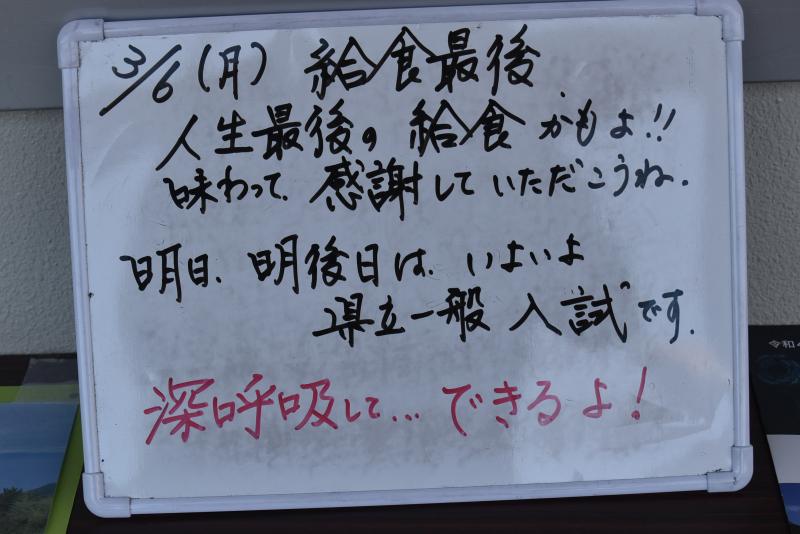 3/6(月) 給食最後.
人生最後の 給食 かもよ!!
味わって. 感謝していただこうね.
明日、明後日は、いよいよ
県立一般 入試です.
深呼吸して... できるよ!
令和